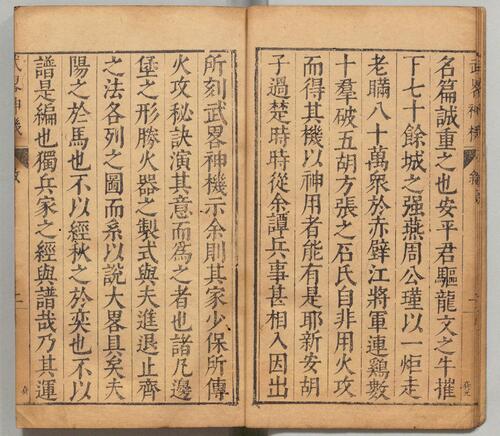 名篇誠重之也安平君驅龍文之牛摧
下七十餘城之强燕周公瑾以一炬走
老瞞八十萬衆於赤壁江將軍連鷄數
十羣破五胡方張之石氏自非用火攻
而得其機以神用者能有是耶新安胡
子過楚時時從余譚兵事甚相入因出
所刻武畧神機示余則其家少保所傳
火攻秘訣演其意而爲之者也諸凡邊
堡之形勝火器之製式與夫進退止齊
之法各列之圖而系以說大畧具矣夫
陽之於馬也不以經秋之於奕也不以
譜是編也獨兵家之經與譜哉乃其運
武畧神機
二
武畧神機
二